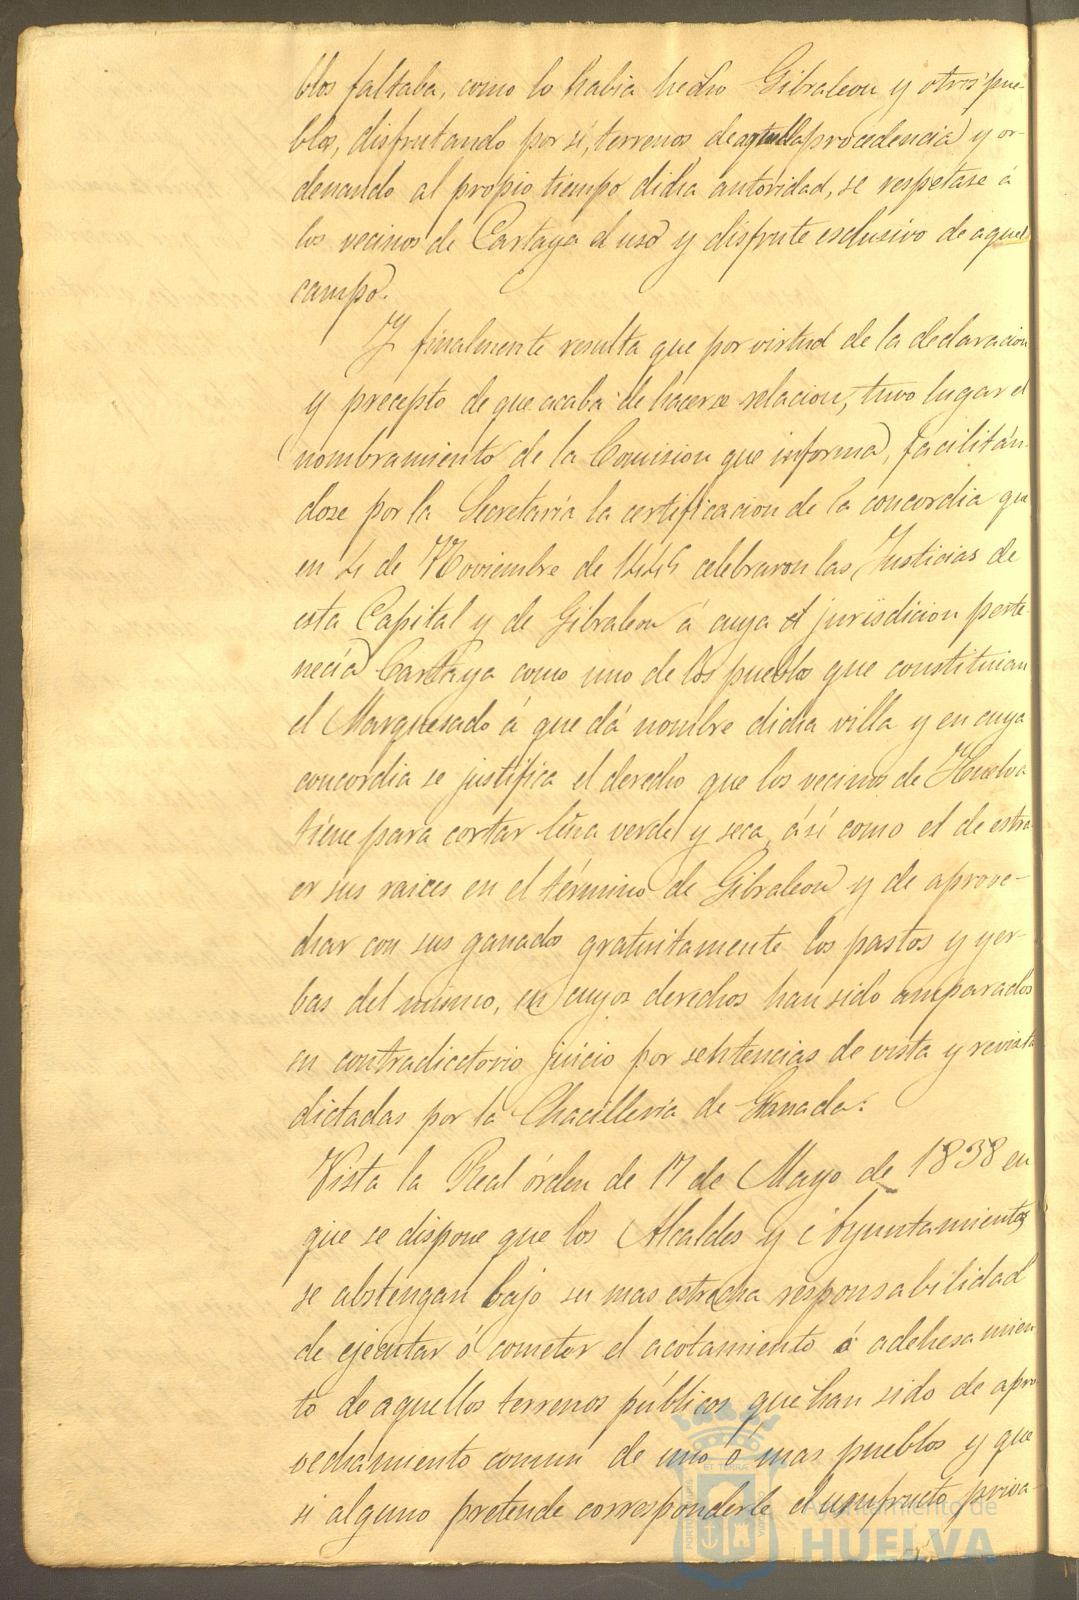 blos faltaba, como lo habia hecho Gibraleon y otros pue-
blos, disfrutando por sí, terrenos de aquella procedencia y or-
denando al propio tiempo dicha autoridad, se respetase á
los vecinos de Cartaya el uso y disfrute esclusivo de aquel
campo.
Y finalmente resulta que por virtud de la declaracion
y precepto de que acaba de hacerse relacion, tuvo lugar el
nombramiento de la Comision que informa, facilitán-
dose por la Secretaría la certificacion de la concordia que
en 4 de Noviembre de celebraron las Justicias de
esta Capital y de Gibraleon á cuya jurisdicion perte-
necía Cartaya como uno de los pueblos que constituian
el Marquesado á que dá nombre dicha villa y en cuya
concordia se justifica el derecho que los vecinos de Huelva
tiene para cortar leña verde y seca, ási como el de estra-
er sus raices en el término de Gibraleon y de aprove-
char con sus ganados gratuitamente los pastos y yer-
bas del mismo, en cuyos derechos han sido amparados
en contradictorio juicio por sentencias de vista y revista
dictadas por la Chacilleria de Granada.
Vista la Real órden de 17 de Mayo de 1838 en
que se dispone que los Alcaldes y Ayuntamientos
se abstengan bajo su mas estrecha responsabilidad
de ejecutar ó cometer el acotamiento ó adehesamien-
to de aquellos terrenos públicos que han sido de apro-
vechamiento comun de uno ó mas pueblos y que
si alguno pretende corresponderle el usufructo priva-
Ayuntamiento de
HUELVA